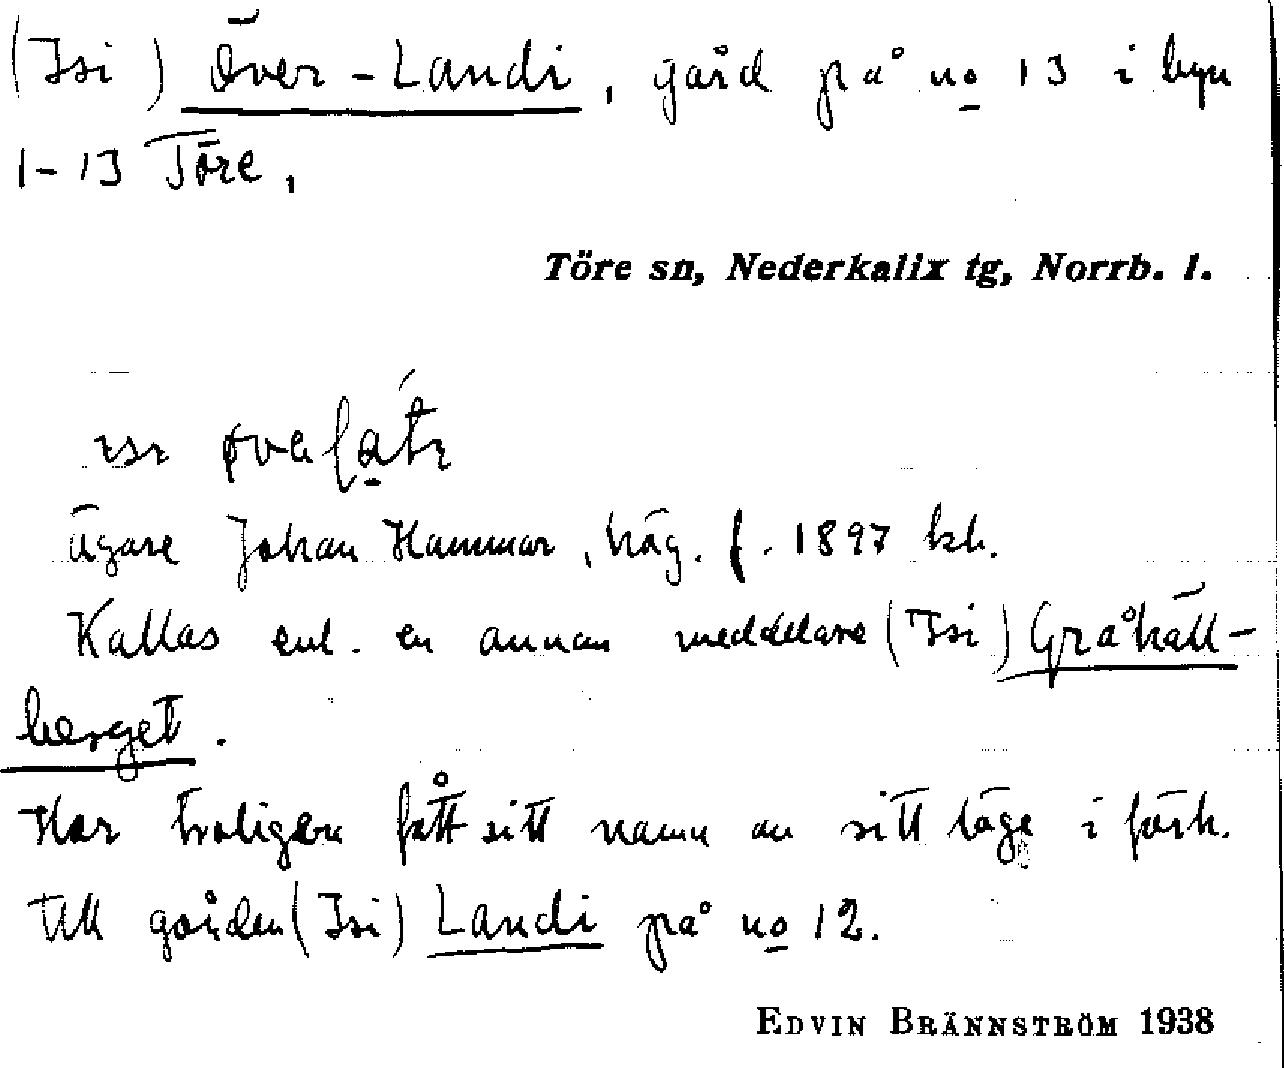 (Isi) Över-Landi, gård på no 13 i byn
1-13 Töre,
Töre sn, Nederkalix tg, Norrb. l.
ägare Johan Hammar, häg. f. 1897 kh.
Kallas enl. en annan meddelare (Isi) Gråhäll-
berget.
Har troligen fått sitt namn av sitt läge i förh.
till gården (Isi) Landi på no 12.
EDVIN BRÄNNSTRÖM 1938